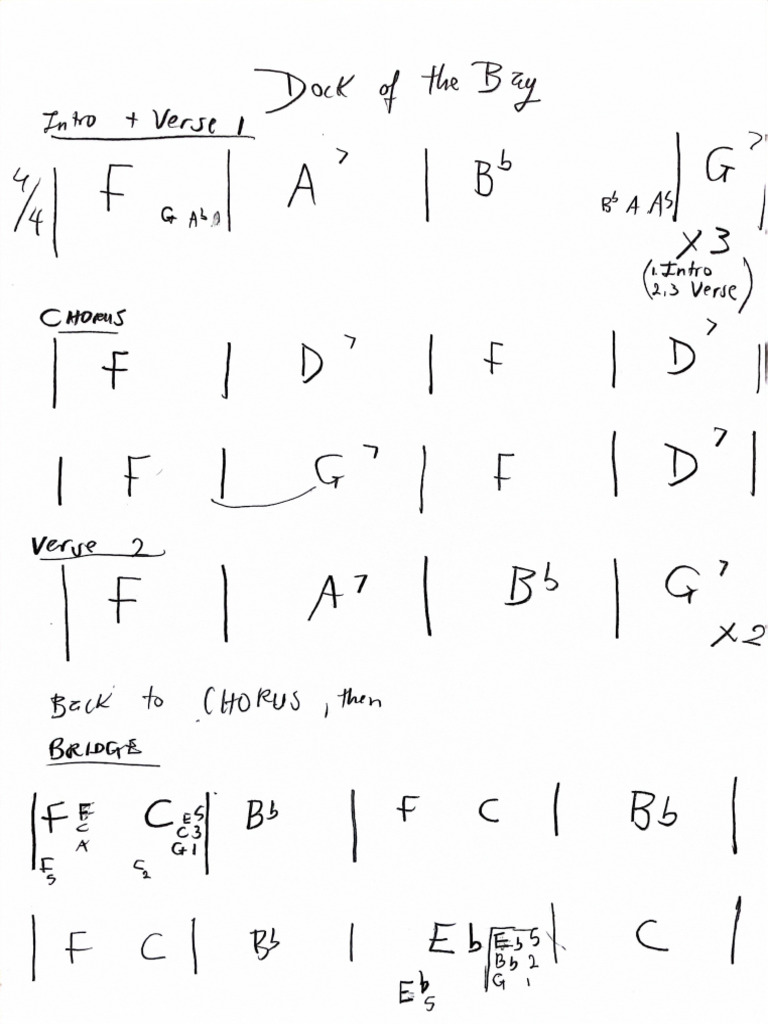 Dock of the Bay
Intro + Verse 1
4/4 | F G Ab | A7 | Bb Bb A Ab | G7 |
X3
(1. Intro
2,3 Verse)
CHORUS
| F | D7 | F | D7 ||
| F | G7 | F | D7 |
Verse 2
| F | A7 | Bb | G7
X2
Back to CHORUS, then
BRIDGE
| F E C | Bb | F C | Bb |
C E5
A C3
G1
F5 C2
| F C | Bb | Eb Eb 5 | C |
Bb 2
G 1
Eb 5